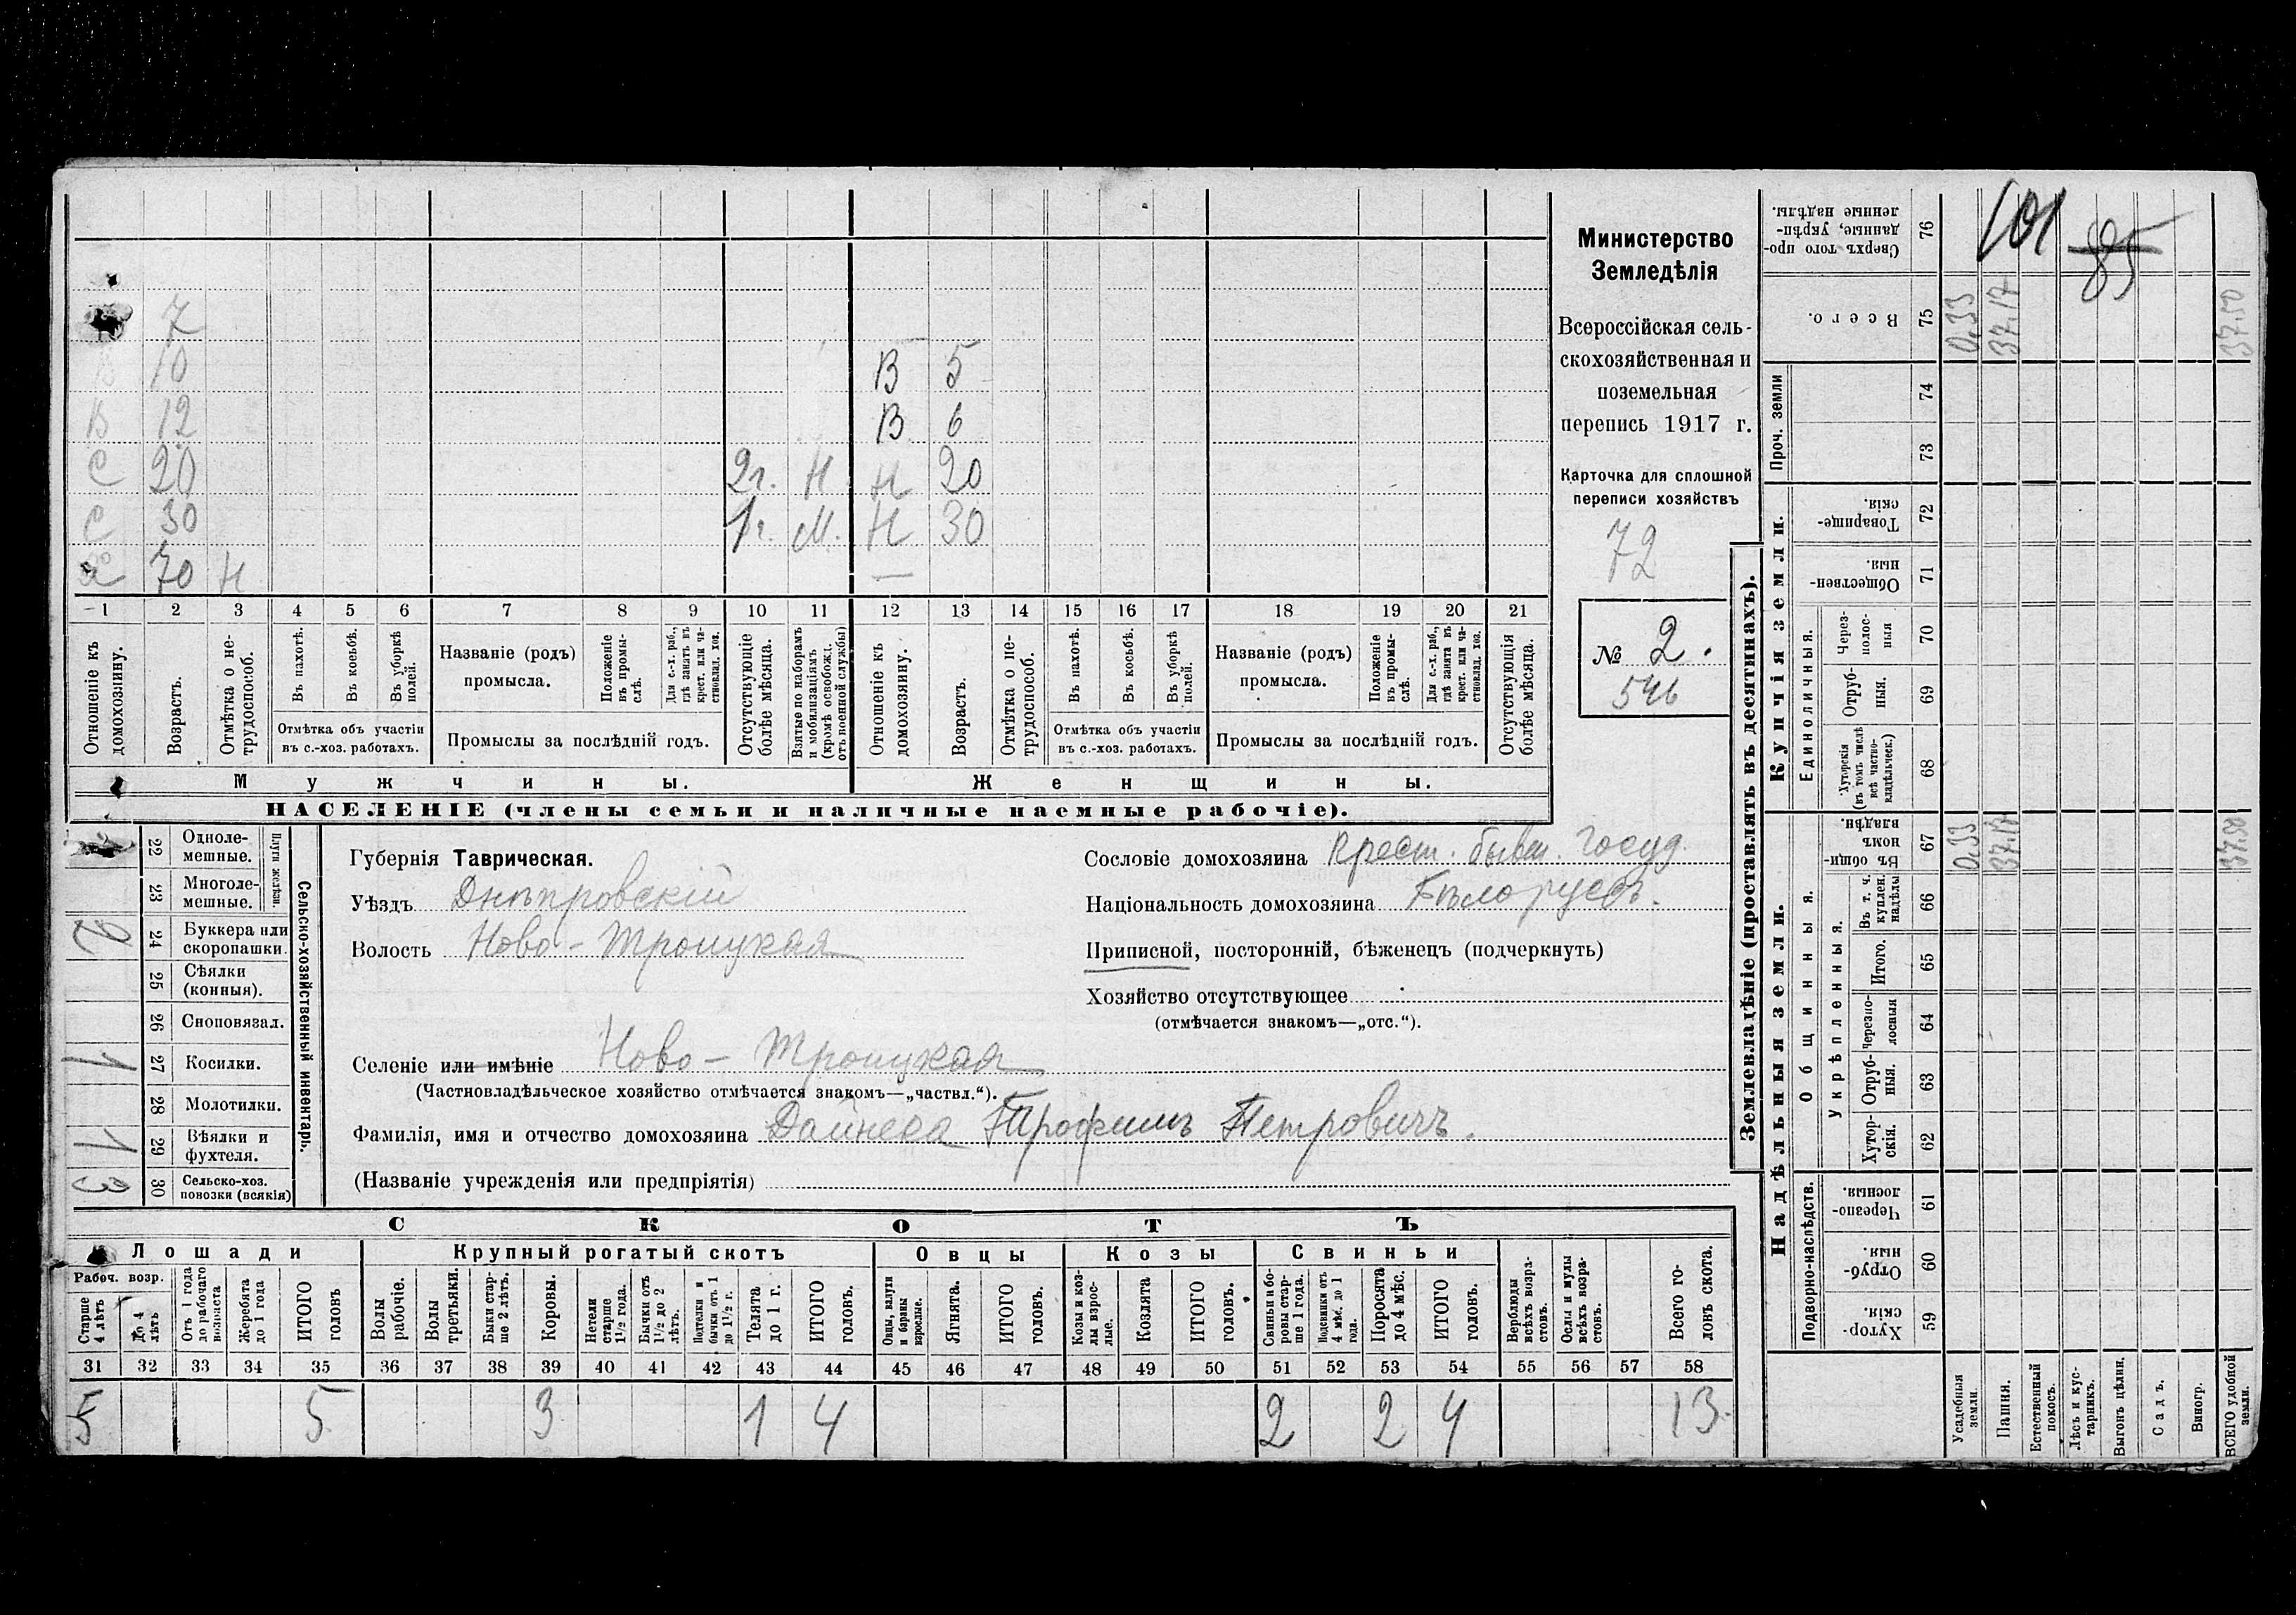 Министерство
Земледѣлія
Всероссійская сель-
скохозяйственная и
поземельная
перепись 1917 г.
Карточка для сплошной
переписи хозяйствъ
72
№ 2.
546
7
10
В 5
В 12
В 6
С 20 2 г. Н Н 20
С 30 1 г. М. Н 30
70 Н —
1 2 3 4 5 6 7 8 9 10 11 12 13 14 15 16 17 18 19 20 21
Отношеніе къ домохозяину.
Возрастъ.
Отмѣтка о не-трудоспособ.
Въ пахотѣ.
Въ косьбѣ.
Въ уборкѣ полей.
Отмѣтка объ участіи
въ с.-хоз. работахъ.
Названіе (родъ)
промысла.
Положеніе въ промы-слѣ.
Для с.-х. раб., гдѣ занятъ въ крест. или ча-стновлад. хоз.
Промыслы за послѣдній годъ.
Отсутствующіе болѣе мѣсяца.
Взятые по наборамъ и мобилизаціямъ (кромѣ освобожд. отъ военной службы)
Отношеніе къ домохозяину.
Возрастъ.
Отмѣтка о не-трудоспособ.
Въ пахотѣ.
Въ косьбѣ.
Въ уборкѣ полей.
Отмѣтка объ участіи
въ с.-хоз. работахъ.
Названіе (родъ)
промысла.
Положеніе въ промы-слѣ.
Для с.-х. раб., гдѣ занята въ крест. или ча-стновлад. хоз.
Промыслы за послѣдній годъ.
Отсутствующія болѣе мѣсяца.
Мужчины.
Женщины.
НАСЕЛЕНІЕ (члены семьи и наличные наемные рабочіе).
Сельско-хозяйственный инвентарь.
Плуги желѣзн.
22 Одноле-мешные.
23 Многоле-мешные.
2 24 Буккера или скоропашки.
25 Сѣялки (конныя).
26 Сноповязал.
1 27 Косилки.
28 Молотилки.
1 29 Вѣялки и фухтеля.
3 30 Сельско-хоз. повозки (всякія)
Губернія Таврическая.
Уѣздъ Днѣпровскій
Волость Ново-Троицкая
Селеніе или имѣніе Ново-Троицкая
(Частновладѣльческое хозяйство отмѣчается знакомъ—„частвл.“).
Фамилія, имя и отчество домохозяина Дайнека Трофимъ Петровичъ.
(Названіе учрежденія или предпріятія)
Сословіе домохозяина Крест. бывш. госуд.
Національность домохозяина Бѣлоруссъ.
Приписной, посторонній, бѣженецъ (подчеркнуть)
Хозяйство отсутствующее
(отмѣчается знакомъ—„отс.“).
СКОТЪ
Лошади
Крупный рогатый скотъ
Овцы
Козы
Свиньи
Рабоч. возр.
Старше 4 лѣтъ
до 4 лѣтъ
Отъ 1 года до рабочаго возраста
Жеребята до 1 года
ИТОГО головъ
Волы рабочіе.
Волы третьяки.
Быки стар-ше 2 лѣтъ.
Коровы.
Нетели старше 1½ года.
Бычки отъ 1½ до 2 лѣтъ.
Подтелки и бычки отъ 1 до 1½ г.
Телята до 1 г.
ИТОГО головъ.
Овцы, валухи и бараны взрослые.
Ягнята.
ИТОГО головъ.
Козы и коз-лы взрос-лые.
Козлята
ИТОГО головъ.
Свиньи и бо-ровы стар-ше 1 года.
Подсвинки отъ 4 мѣс. до 1 года.
Поросята до 4 мѣс.
ИТОГО головъ.
Верблюды всѣхъ возра-стовъ.
Ослы и мулы всѣхъ возра-стовъ.
Всего го-ловъ скота.
31 32 33 34 35 36 37 38 39 40 41 42 43 44 45 46 47 48 49 50 51 52 53 54 55 56 57 58
5 5 3 1 4 2 2 4 13
Землевладѣніе (проставлять въ десятинахъ).
Надѣльныя земли.
Купчія земли.
Проч. земли
Подворно-наслѣдств.
Общинныя.
Укрѣпленныя.
Единоличныя.
Сверхъ того про-данные, укрѣп-ленные надѣлы. 76
Всего. 75 0.33 37.17 37.50
74
73
Товарище-скія. 72
Обществен-ныя. 71
Через-полос-ныя 70
Отруб-ныя. 69
Хуторскія (въ томъ числѣ всѣ частно-владѣльческ.) 68
Въ общи-номъ владѣн. 67 0.33 37.17 37.50
Въ т. ч. куплен. надѣлы 66
Итого. 65
Черезпо-лосныя 64
Отруб-ныя. 63
Хутор-скія. 62
Черезпо-лосныя. 61
Отруб-ныя. 60
Хутор-скія. 59
Усадебныя земли.
Пашня.
Естественный покосъ.
Лѣсъ и кус-тарникъ.
Выгонъ цѣлин.
Садъ.
Виногр.
ВСЕГО удобной земли.
101
85